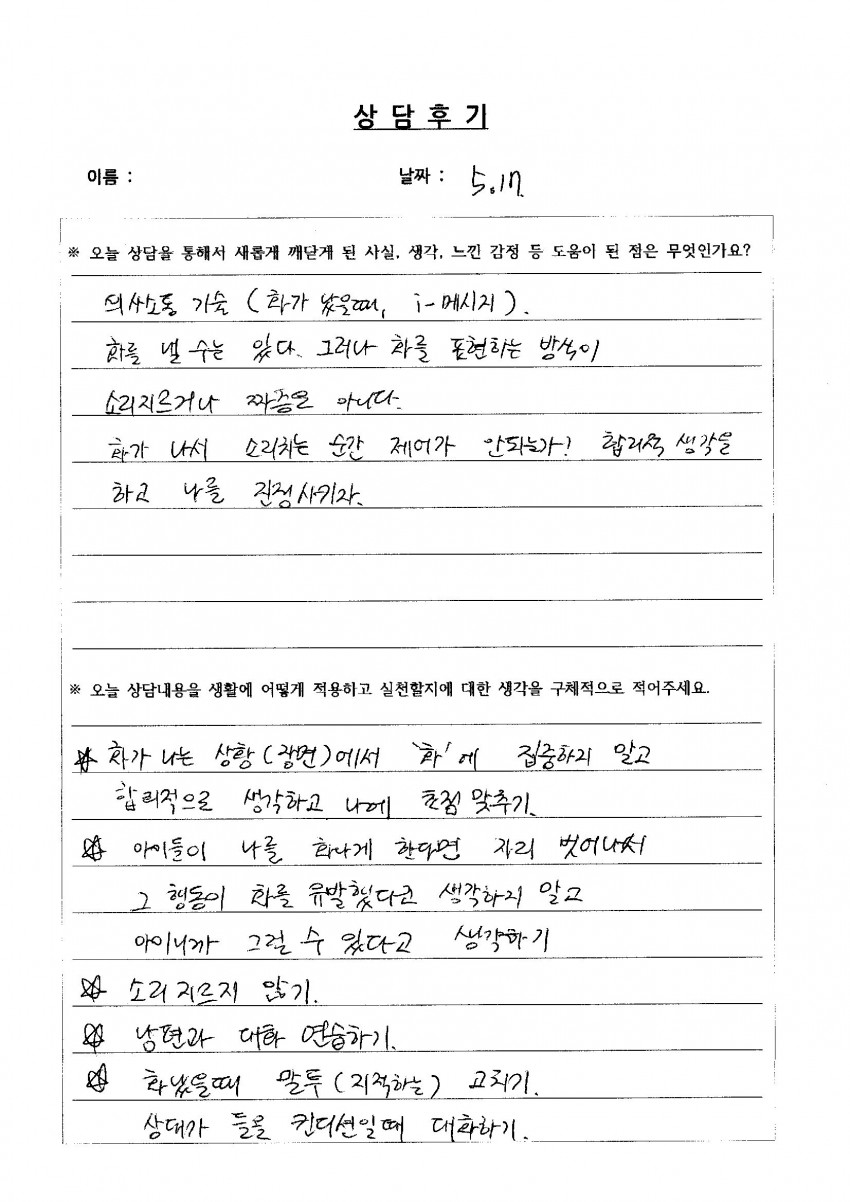 상 담 후 기
이름 :
날짜 : 5.17.
※ 오늘 상담을 통해서 새롭게 깨닫게 된 사실, 생각, 느낀 감정 등 도움이 된 점은 무엇인가요?
의사소통 기술 ( 화가 났을때, i-메시지 ).
화를 낼 수는 있다. 그러나 화를 표현하는 방식이
소리지르거나 짜증은 아니다.
화가 나서 소리치는 순간 제어가 안되는가! 합리적 생각을
하고 나를 진정시키자.
※ 오늘 상담내용을 생활에 어떻게 적용하고 실천할지에 대한 생각을 구체적으로 적어주세요.
☆ 화가 나는 상황(장면)에서 '화'에 집중하지 말고
합리적으로 생각하고 나에 초점 맞추기.
☆ 아이들이 나를 화나게 한다면 자리 벗어나서
그 행동이 화를 유발했다고 생각하지 말고
아이니까 그럴 수 있다고 생각하기
☆ 소리 지르지 않기.
☆ 남편과 대화 연습하기.
☆ 화났을때 말투 (지적하는) 고치기.
상대가 들을 컨디션일때 대화하기.